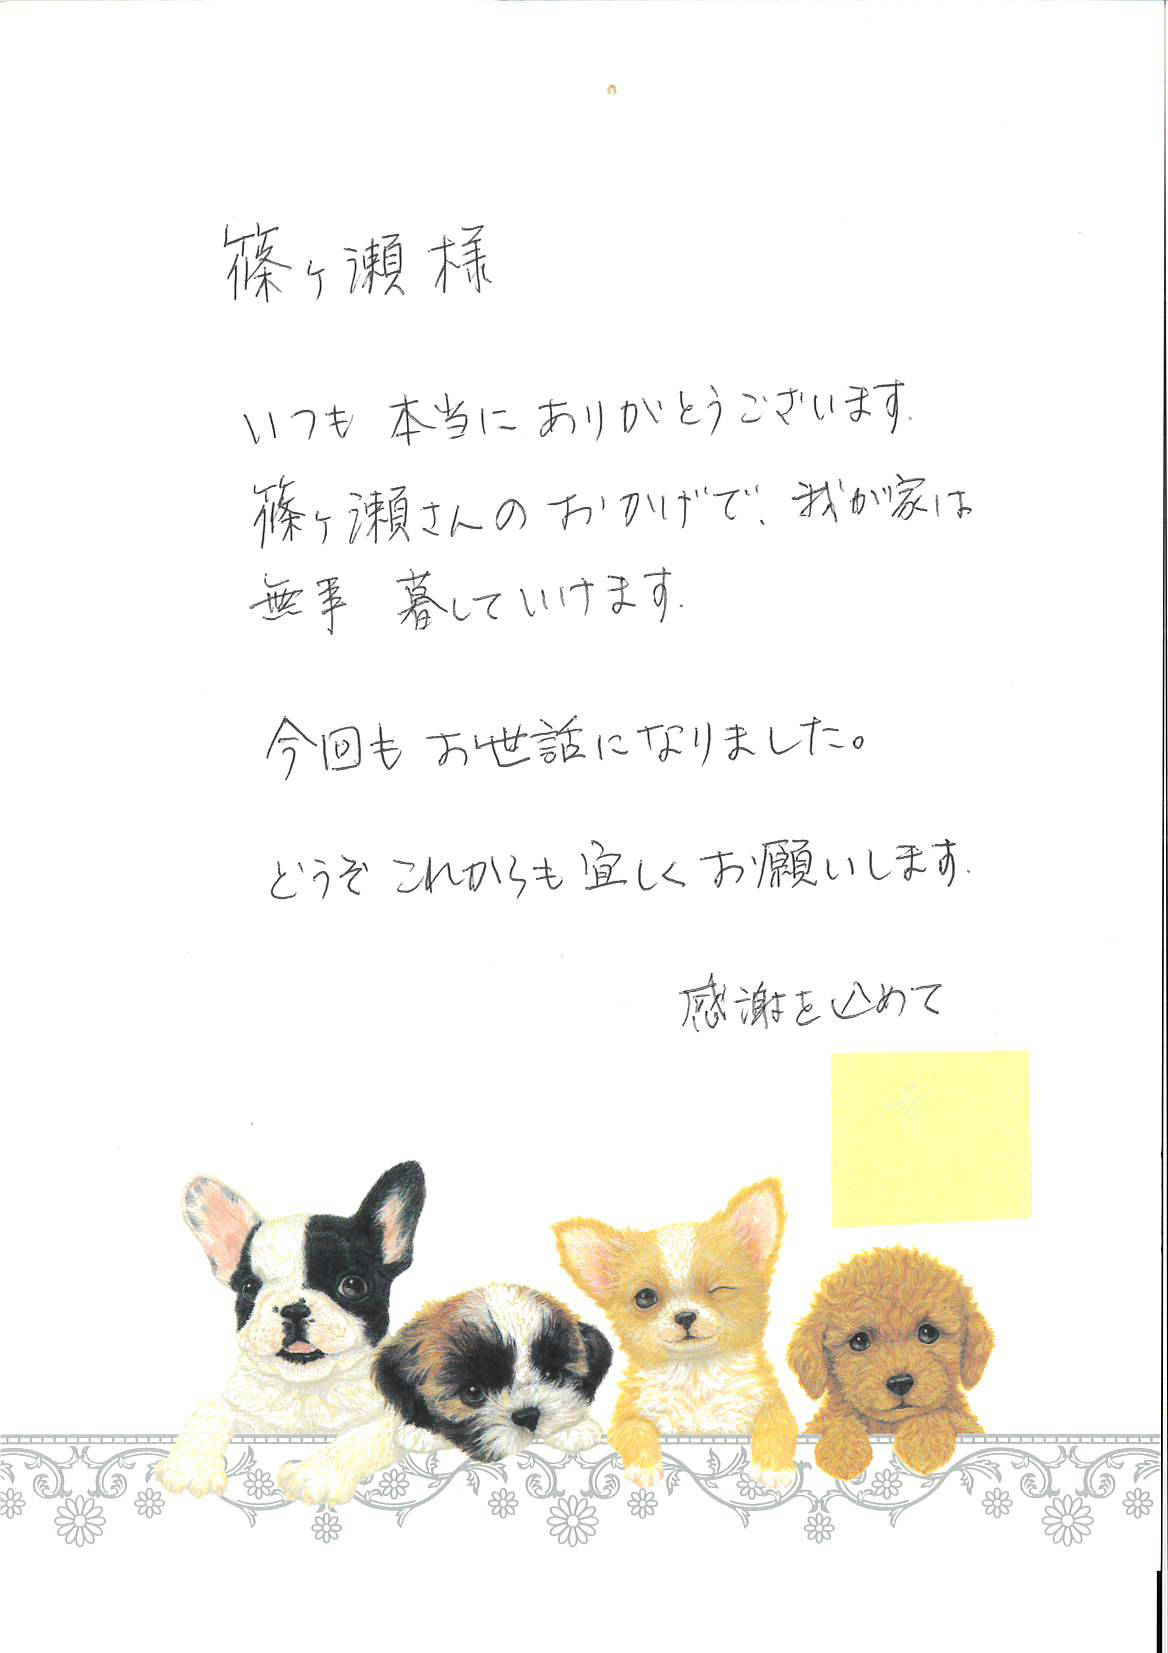 篠ヶ瀬 様
いつも 本当に ありがとうございます.
篠ヶ瀬さんの おかげで、我が家は
無事 暮していけます.
今回も お世話になりました。
どうぞ これからも 宜しく お願いします.
感謝を込めて